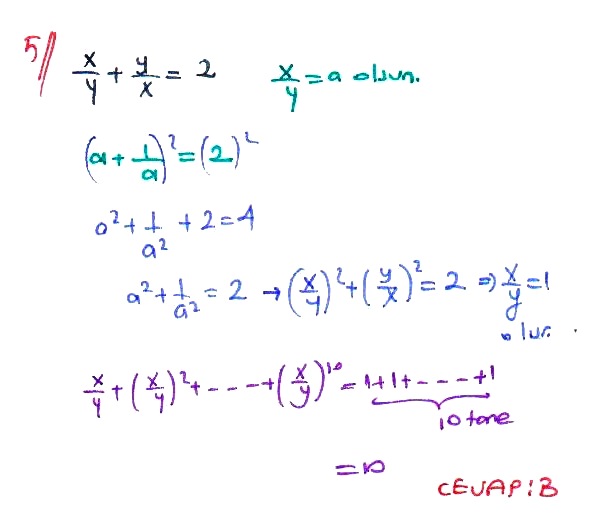 5// x/y + y/x = 2 x/y = a olsun.
(a + 1/a)² = (2)²
a² + 1/a² + 2 = 4
a² + 1/a² = 2 → (x/y)² + (y/x)² = 2 ⇒ x/y = 1
olur.
x/y + (x/y)² + ---- + (x/y)¹⁰ = 1+1+----+1
10 tane
= 10
CEVAP: B